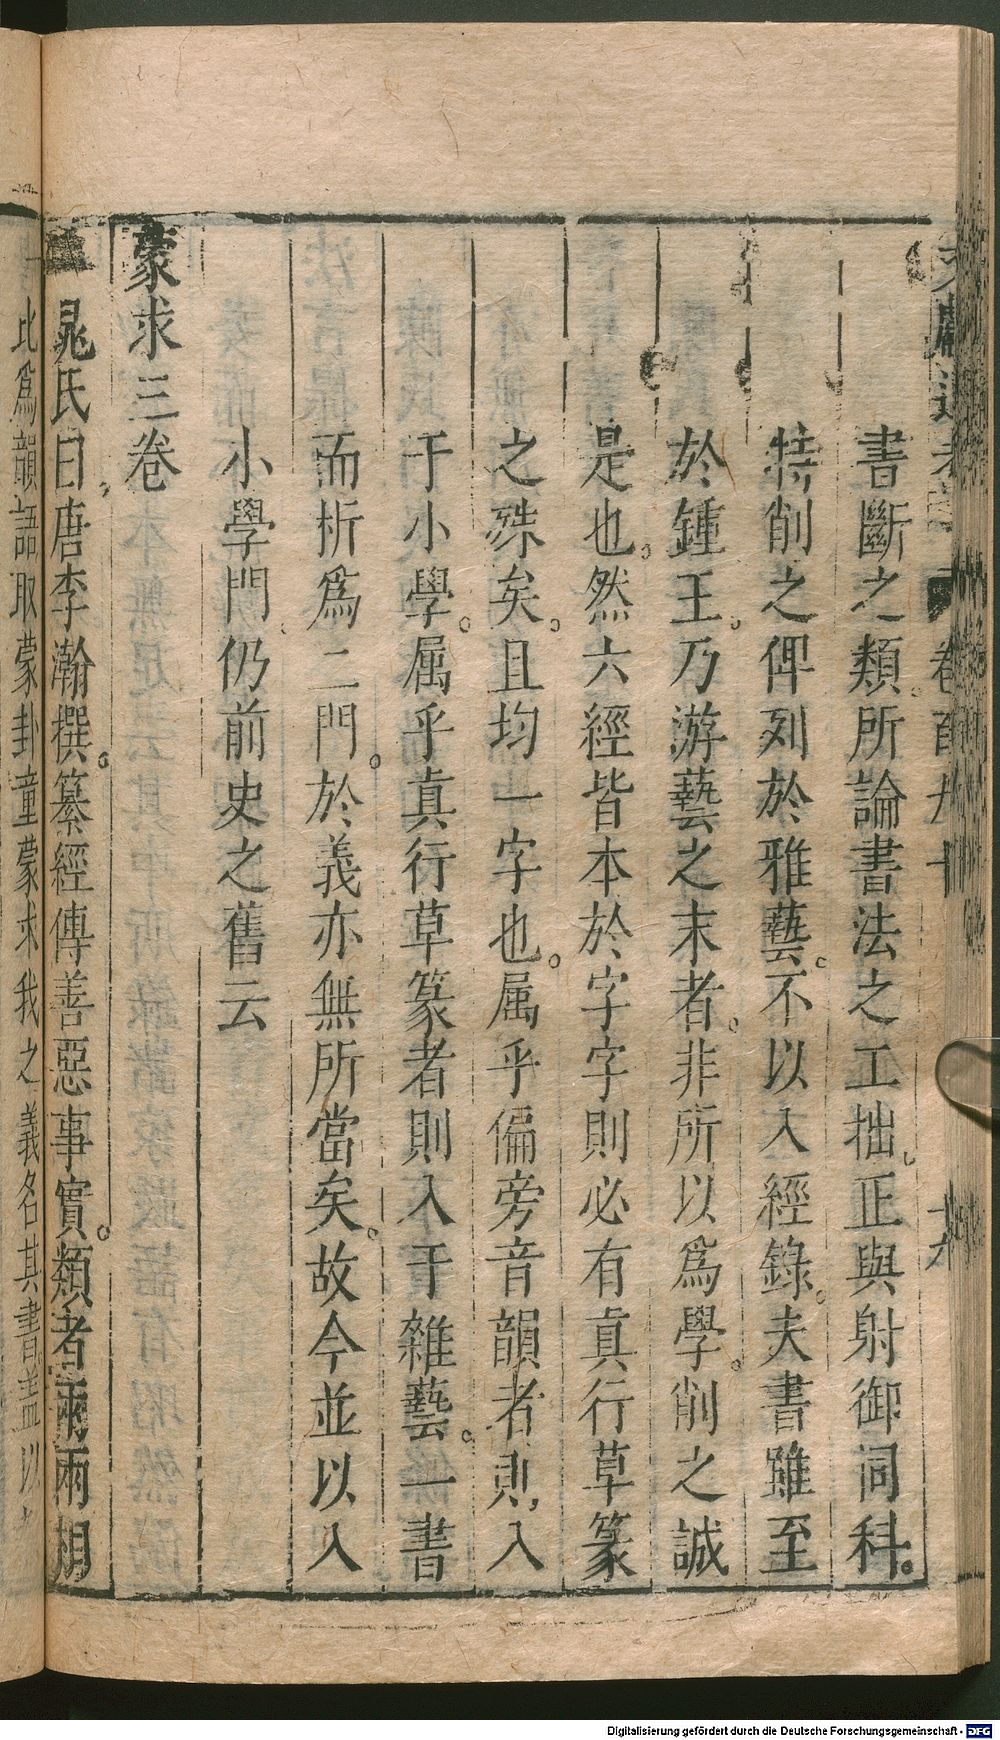 書斷之類。所論書法之工拙。正與射御同科。
特削之俾列於雅藝。不以入經錄。夫書雖至
於鍾王。乃游藝之末者。非所以爲學。削之誠
是也。然六經皆本於字字則必有真行草篆
之殊矣。且均一字也。屬乎偏旁音韻者則入
于小學。屬乎真行草篆者則入于雜藝。一書
而析爲二門。於義亦無所當矣。故今並以入
小學門仍前史之舊云
蒙求三卷
晁氏曰唐李瀚撰。纂經傳善惡事實。類者兩兩相
此爲韻語取蒙卦童蒙求我之義名其書蓋以
Digitalisierung gefördert durch die Deutsche Forschungsgemeinschaft - DFG